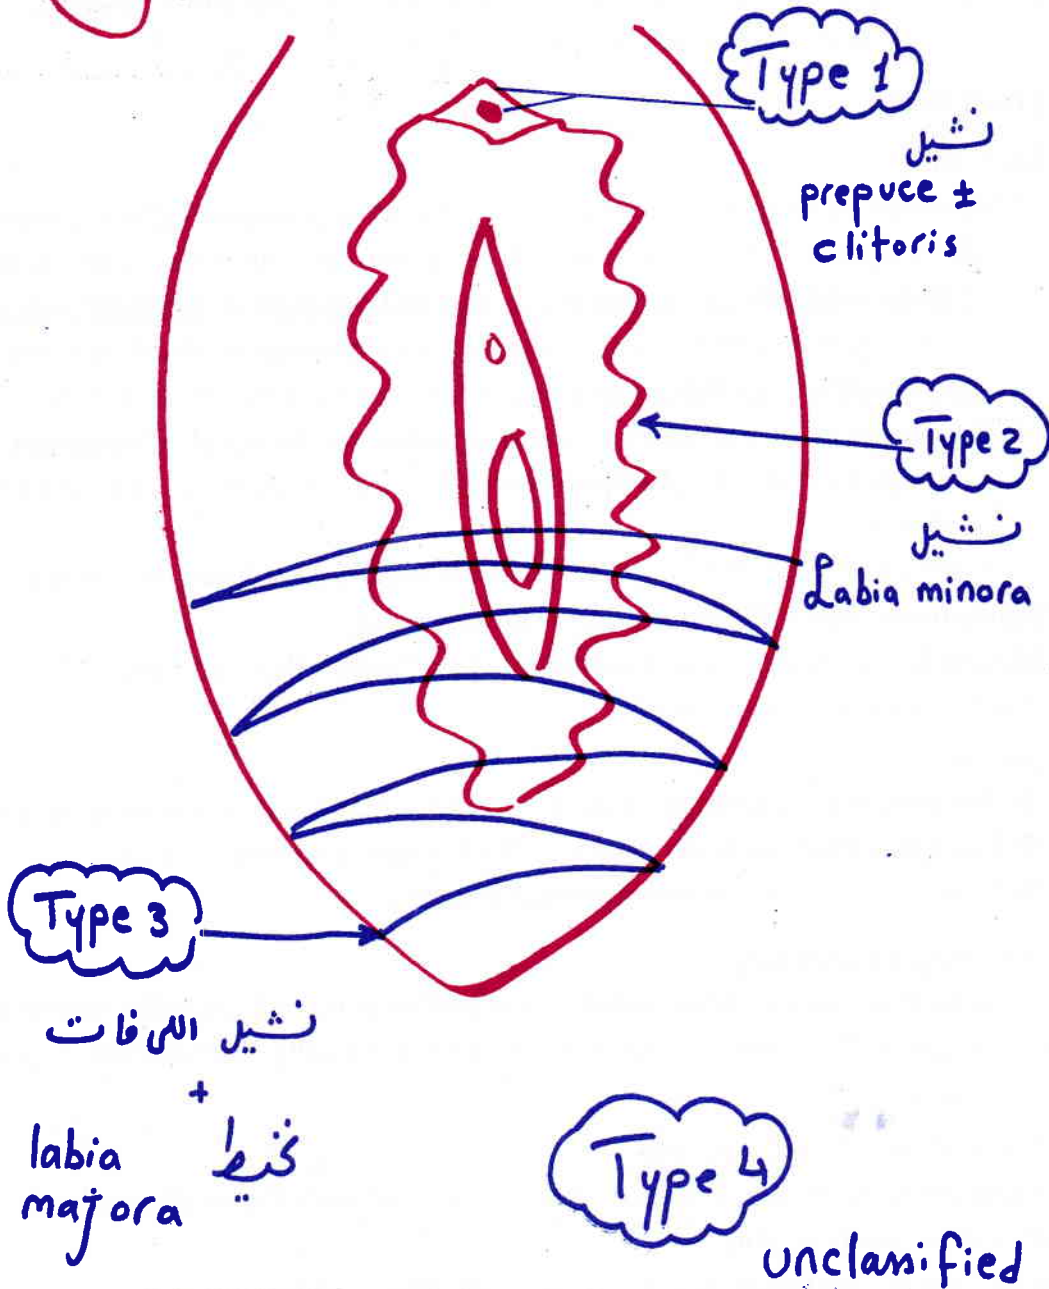 Type 1
نشيل
prepuce ±
clitoris
Type 2
نشيل
Labia minora
Type 3
نشيل اللي فات
+
نخيط
labia
majora
Type 4
unclassified